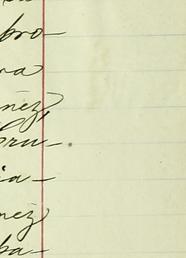 bro-
ra
ñez,
pru-
ia-
nez
ba-